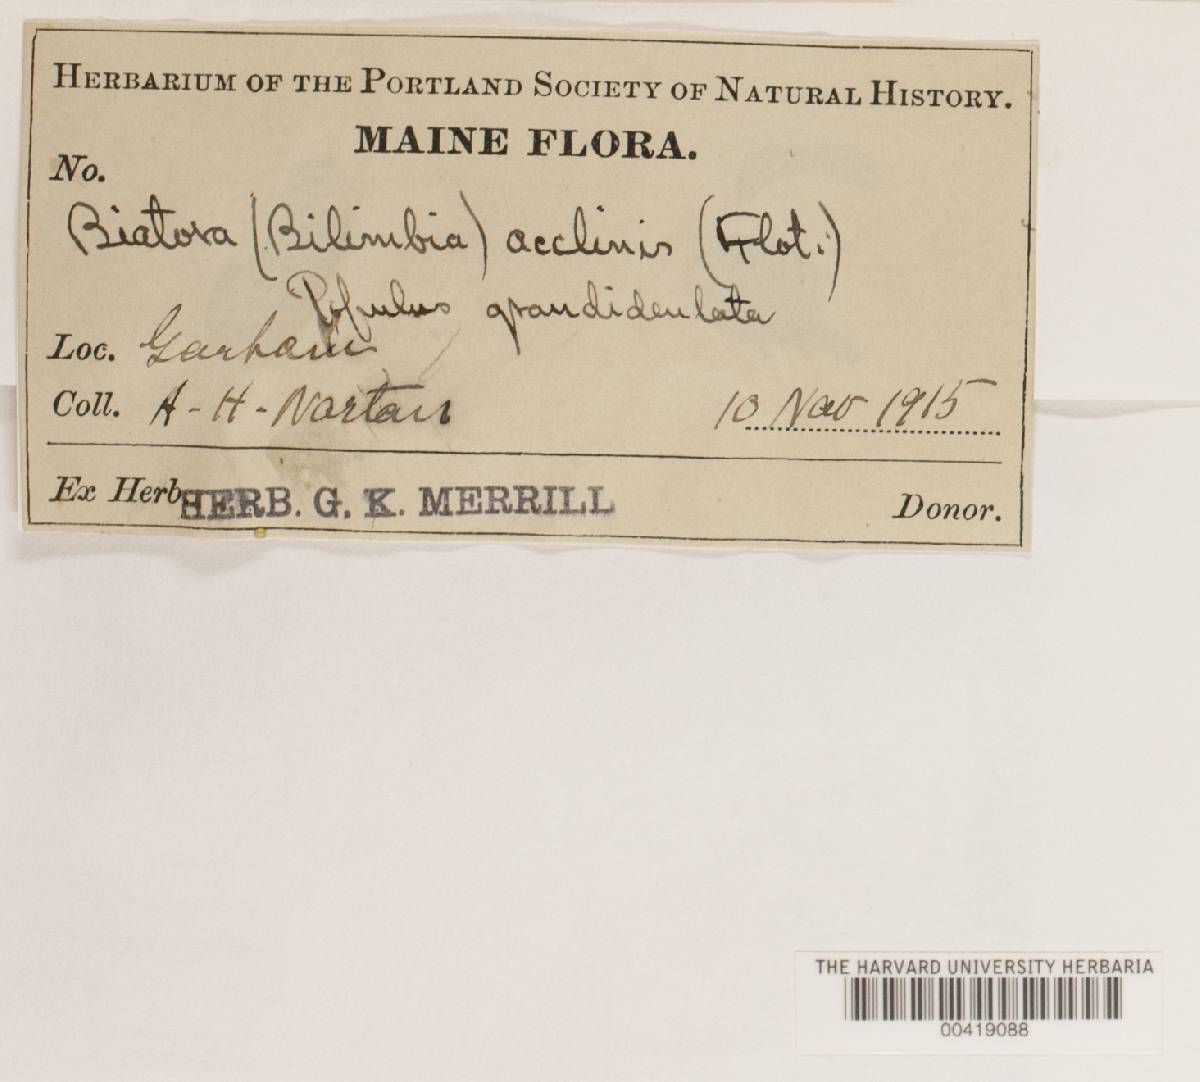 HERBARIUM OF THE PORTLAND SOCIETY OF NATURAL HISTORY.
MAINE FLORA.
No.
Biatora (Bilimbia) acclinis (Flot.)
Populus grandidentata
Loc. Gorham
Coll. A-H-Norton 10 Nov 1915
Ex Herb HERB. G. K. MERRILL Donor.
THE HARVARD UNIVERSITY HERBARIA
00419088